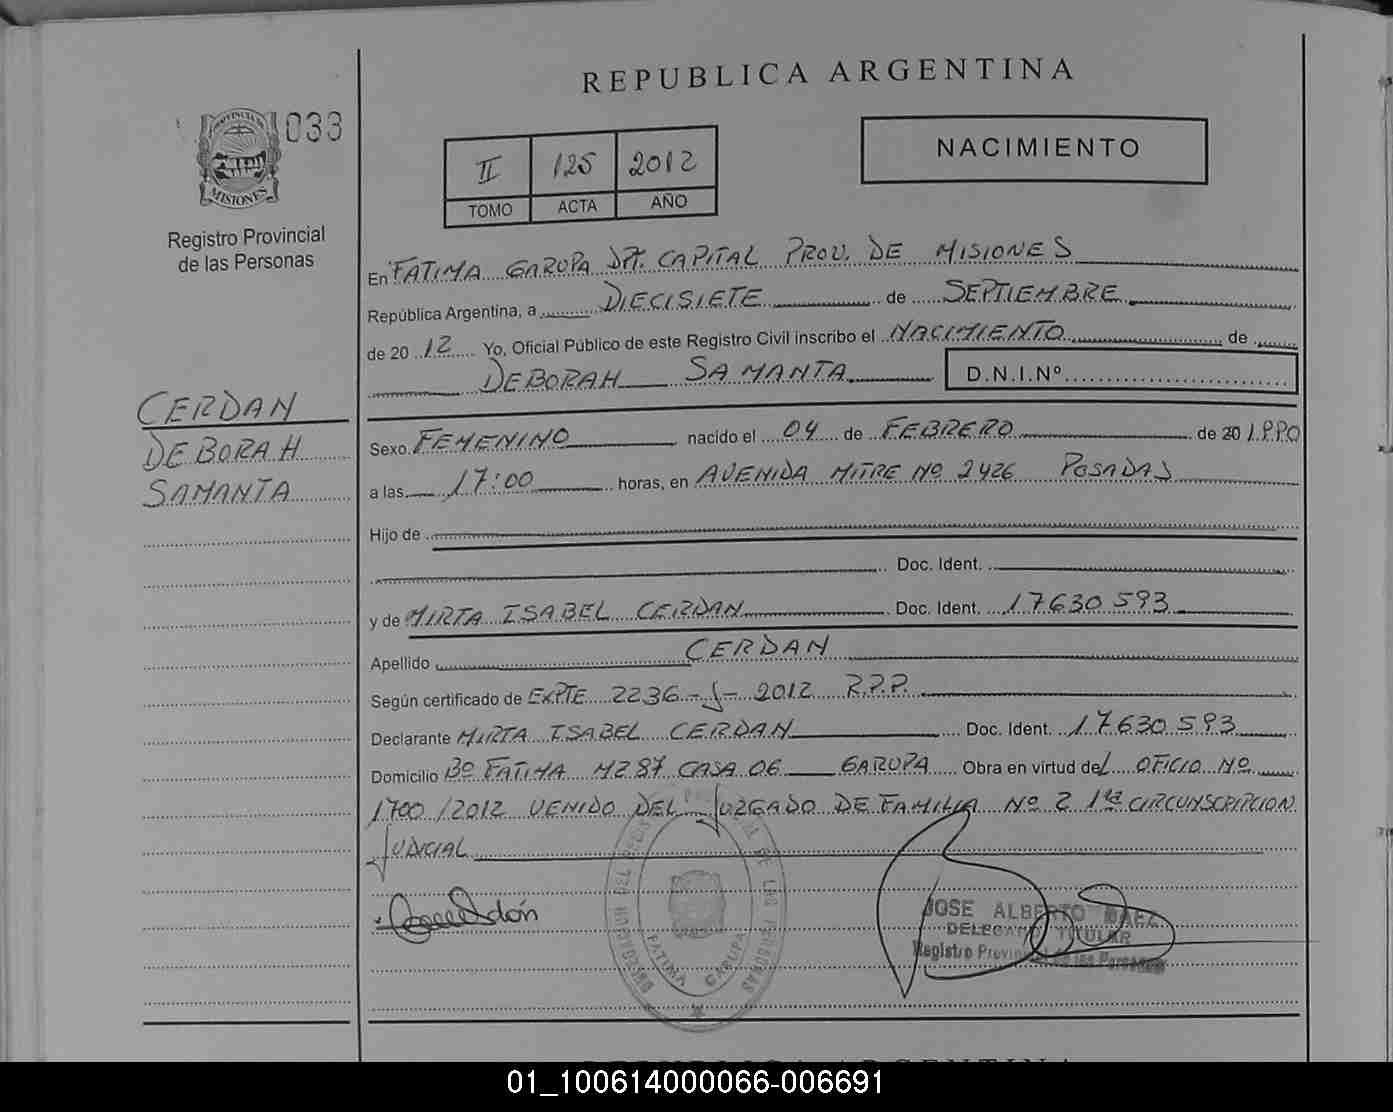 REPUBLICA ARGENTINA
033
II 125 2012
TOMO ACTA AÑO
NACIMIENTO
MISIONES
Registro Provincial
de las Personas
En FATIMA GARUPA DPT. CAPITAL PROV. DE MISIONES
República Argentina, a DIECISIETE de SEPTIEMBRE
de 2012 Yo, Oficial Público de este Registro Civil inscribo el NACIMIENTO de
DEBORAH SAMANTA D.N.I.Nº
CERDAN
DEBORAH
SAMANTA
Sexo FEMENINO nacido el 04 de FEBRERO de 20
a las 17:00 horas, en AVENIDA MITRE Nº 2426 POSADAS
Hijo de
Doc. Ident.
y de MIRTA ISABEL CERDAN Doc. Ident. 17630593
Apellido CERDAN
Según certificado de EXPTE 2236-J-2012 R.P.P.
Declarante MIRTA ISABEL CERDAN Doc. Ident. 17630593
Domicilio Bº FATIMA MZ 87 CASA 06 GARUPA Obra en virtud del OFICIO Nº
1700/2012 VENIDO DEL JUZGADO DE FAMILIA Nº 2 1ra CIRCUNSCRIPCION
JUDICIAL
FATIMA GARUPA
JOSE ALBERTO BAEZ
DELEGADO TITULAR
Registro Provincial de las Personas
REPUBLICA ARGENTINA
01_100614000066-006691